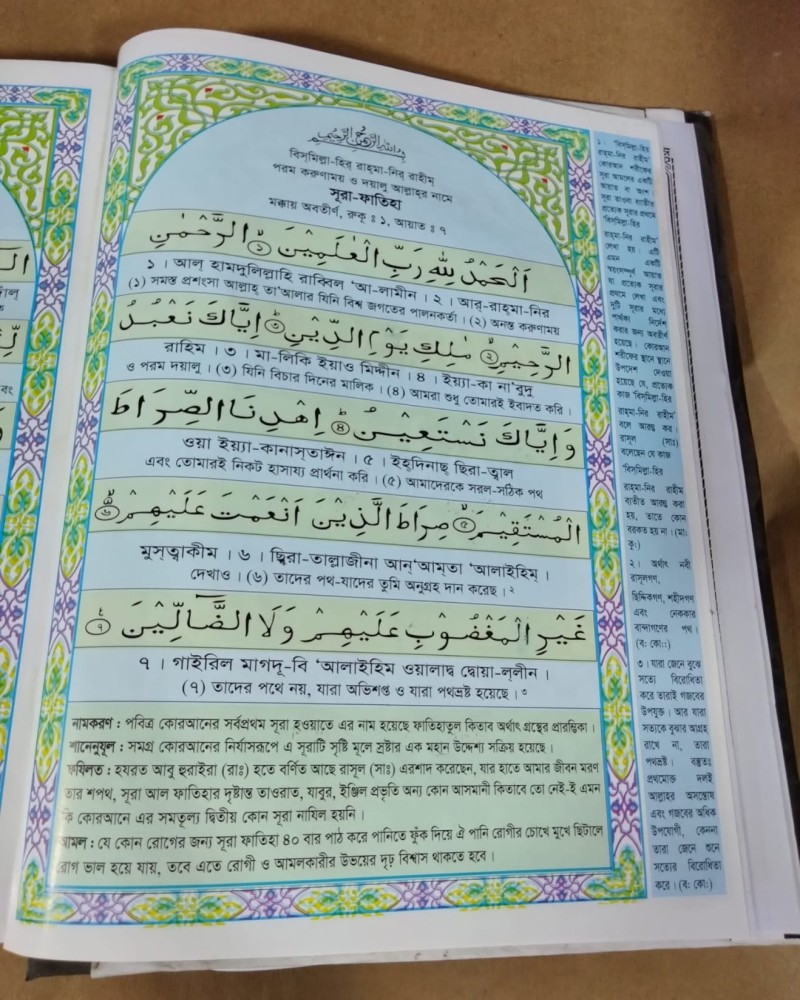 بسم الله الرحمن الرحيم
বিস্‌মিল্লা-হির্ রাহ্‌মা-নির্ রাহীম্
পরম করুণাময় ও দয়ালু আল্লাহর নামে
সূরা-ফাতিহা
মক্কায় অবতীর্ণ, রুকূ : ১, আয়াত : ৭
اَلْحَمْدُ لِلّٰهِ رَبِّ الْعٰلَمِيْنَ ۝١ الرَّحْمٰنِ
১। আল্ হামদুলিল্লাহি রাব্বিল 'আ-লামীন। ২। আর্-রাহ্‌মা-নির
(১) সমস্ত প্রশংসা আল্লাহ্ তা'আলার যিনি বিশ্ব জগতের পালনকর্তা। (২) অনন্ত করুণাময়
الرَّحِيْمِ ۝٢ مٰلِكِ يَوْمِ الدِّيْنِ ۝٣ اِيَّاكَ نَعْبُدُ
রাহিম। ৩। মা-লিকি ইয়াও মিদ্দীন। ৪। ইয়্যা-কা না'বুদু
ও পরম দয়ালু। (৩) যিনি বিচার দিনের মালিক। (৪) আমরা শুধু তোমারই ইবাদত করি।
وَاِيَّاكَ نَسْتَعِيْنُ ۝٤ اِهْدِنَا الصِّرَاطَ
ওয়া ইয়্যা-কানাস্‌তাঈন। ৫। ইহ্‌দিনাছ্ ছিরা-ত্বাল
এবং তোমারই নিকট হাসায্য প্রার্থনা করি। (৫) আমাদেরকে সরল-সঠিক পথ
الْمُسْتَقِيْمَ ۝٥ صِرَاطَ الَّذِيْنَ اَنْعَمْتَ عَلَيْهِمْ ۝٦
মুস্‌ত্বাকীম। ৬। ছ্বিরা-তাল্লাজীনা আন্'আম্‌তা 'আলাইহিম্।
দেখাও। (৬) তাদের পথ-যাদের তুমি অনুগ্রহ দান করেছ।২
غَيْرِ الْمَغْضُوْبِ عَلَيْهِمْ وَلَا الضَّآلِّيْنَ ۝٧
৭। গাইরিল মাগদূ-বি 'আলাইহিম ওয়ালাদ্ব দ্বোয়া-ল্‌লীন।
(৭) তাদের পথে নয়, যারা অভিশপ্ত ও যারা পথভ্রষ্ট হয়েছে।৩
নামকরণ : পবিত্র কোরআনের সর্বপ্রথম সূরা হওয়াতে এর নাম হয়েছে ফাতিহাতুল কিতাব অর্থাৎ গ্রন্থের প্রারম্ভিকা।
শানেনুযূল : সমগ্র কোরআনের নির্যাসরূপে এ সূরাটি সৃষ্টি মূলে স্রষ্টার এক মহান উদ্দেশ্য সক্রিয় হয়েছে।
ফযিলত : হযরত আবু হুরাইরা (রাঃ) হতে বর্ণিত আছে রাসূল (সাঃ) এরশাদ করেছেন, যার হাতে আমার জীবন মরণ
তার শপথ, সূরা আল ফাতিহার দৃষ্টান্ত তাওরাত, যাবুর, ইঞ্জিল প্রভৃতি অন্য কোন আসমানী কিতাবে তো নেই-ই এমন
কি কোরআনে এর সমতূল্য দ্বিতীয় কোন সূরা নাযিল হয়নি।
আমল : যে কোন রোগের জন্য সূরা ফাতিহা ৪০ বার পাঠ করে পানিতে ফুঁক দিয়ে ঐ পানি রোগীর চোখে মুখে ছিটালে
রোগ ভাল হয়ে যায়, তবে এতে রোগী ও আমলকারীর উভয়ের দৃঢ় বিশ্বাস থাকতে হবে।
১। 'বিস্‌মিল্লা-হির
রাহ্‌মা-নির রাহীম'
কোরআন শরীফের
সূরা আমলের একটি
আয়াত বা অংশ
সূরা তাওবা ব্যতীত
প্রত্যেক সূরার প্রথমে
'বিস্‌মিল্লা-হির
রাহ্‌মা-নির রাহীম'
লেখা হয়। এটি
এমন একটি
স্বয়ংসম্পূর্ণ আয়াত
যা প্রত্যেক সূরার
প্রথমে লেখা এবং
দুটি সূরার মধ্যে
পার্থক্য নির্দেশ
করার জন্য অবতীর্ণ
হয়েছে। কোরআন
শরীফের স্থানে স্থানে
উপদেশ দেওয়া
হয়েছে যে, প্রত্যেক
কাজ 'বিস্‌মিল্লা-হির
রাহ্‌মা-নির রাহীম'
বলে আরম্ভ কর।
রাসূল (সাঃ)
বলেছেন যে কাজ
'বিস্‌মিল্লা-হির
রাহ্‌মা-নির রাহীম
ব্যতীত আরম্ভ করা
হয়, তাতে কোন
বরকত হয় না। (মাঃ
কুঃ)
২। অর্থাৎ নবী
রাসূলগণ,
ছিদ্দিকগণ, শহীদগণ
এবং নেককার
বান্দাগণের পথ।
(বঃ কোঃ)
৩। যারা জেনে বুঝে
সত্যে বিরোধিতা
করে তারাই গজবের
উপযুক্ত। আর যারা
সত্যকে বুঝার আগ্রহ
রাখে না, তারা
পথভ্রষ্ট। বস্তুতঃ
প্রথমোক্ত দলই
আল্লাহর অসন্তোষ
এবং গজবের অধিক
উপযোগী, কেননা
তারা জেনে শুনে
সত্যের বিরোধিতা
করে। (বঃ কোঃ)